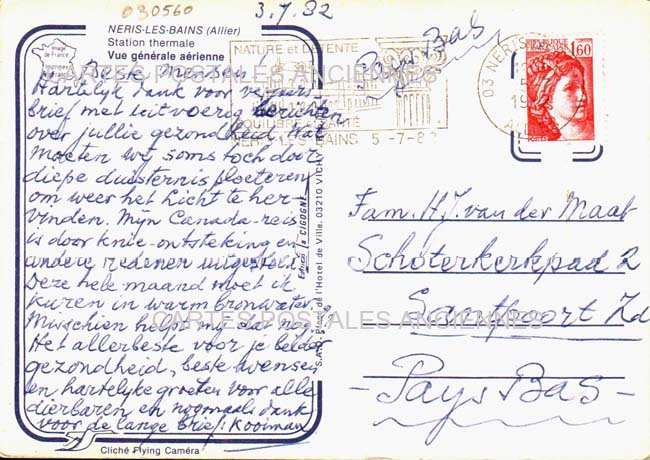 030560
3.7.82
NERIS-LES-BAINS (Allier)
Station thermale
Vue générale aérienne
Image de France
NATURE et DETENTE
EQUILIBRE et SANTE
NERIS-LES-BAINS 5 -7-82
Pays Bas
03 NERIS
1,60
CARTES POSTALES ANCIENNES
Beste mensen!
Hartelijk dank voor je
brief met uitvoerige berichten
over jullie gezondheid. Wat
moeten wij soms toch door
diepe duisternis ploeteren
om weer het licht te her-
vinden. Mijn Canada-reis
is door knie-ontsteking en
andere redenen uitgesteld.
Deze hele maand moet ik
kuren in warm bronwater.
Misschien helpt mij dat nog.
Het allerbeste voor je beider
gezondheid, beste wensen
en hartelijke groeten voor alle
dierbaren en nogmaals dank
voor de lange brief! Kooiman
Editions "La CIGOGNE"
Place de l'Hotel de Ville. 03210 VICHY
Fam. H.J. van der Maat
Schoterkerkpad 2
Santpoort Zd
CARTES POSTALES ANCIENNES
- Pays Bas -
Cliché Flying Caméra